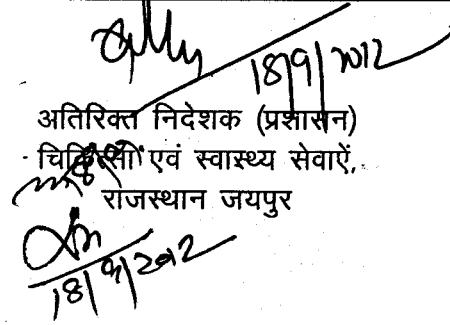 18/9/2012
अतिरिक्त निदेशक (प्रशासन)
चिकित्सा एवं स्वास्थ्य सेवाऐं,
राजस्थान जयपुर
18/9/2012